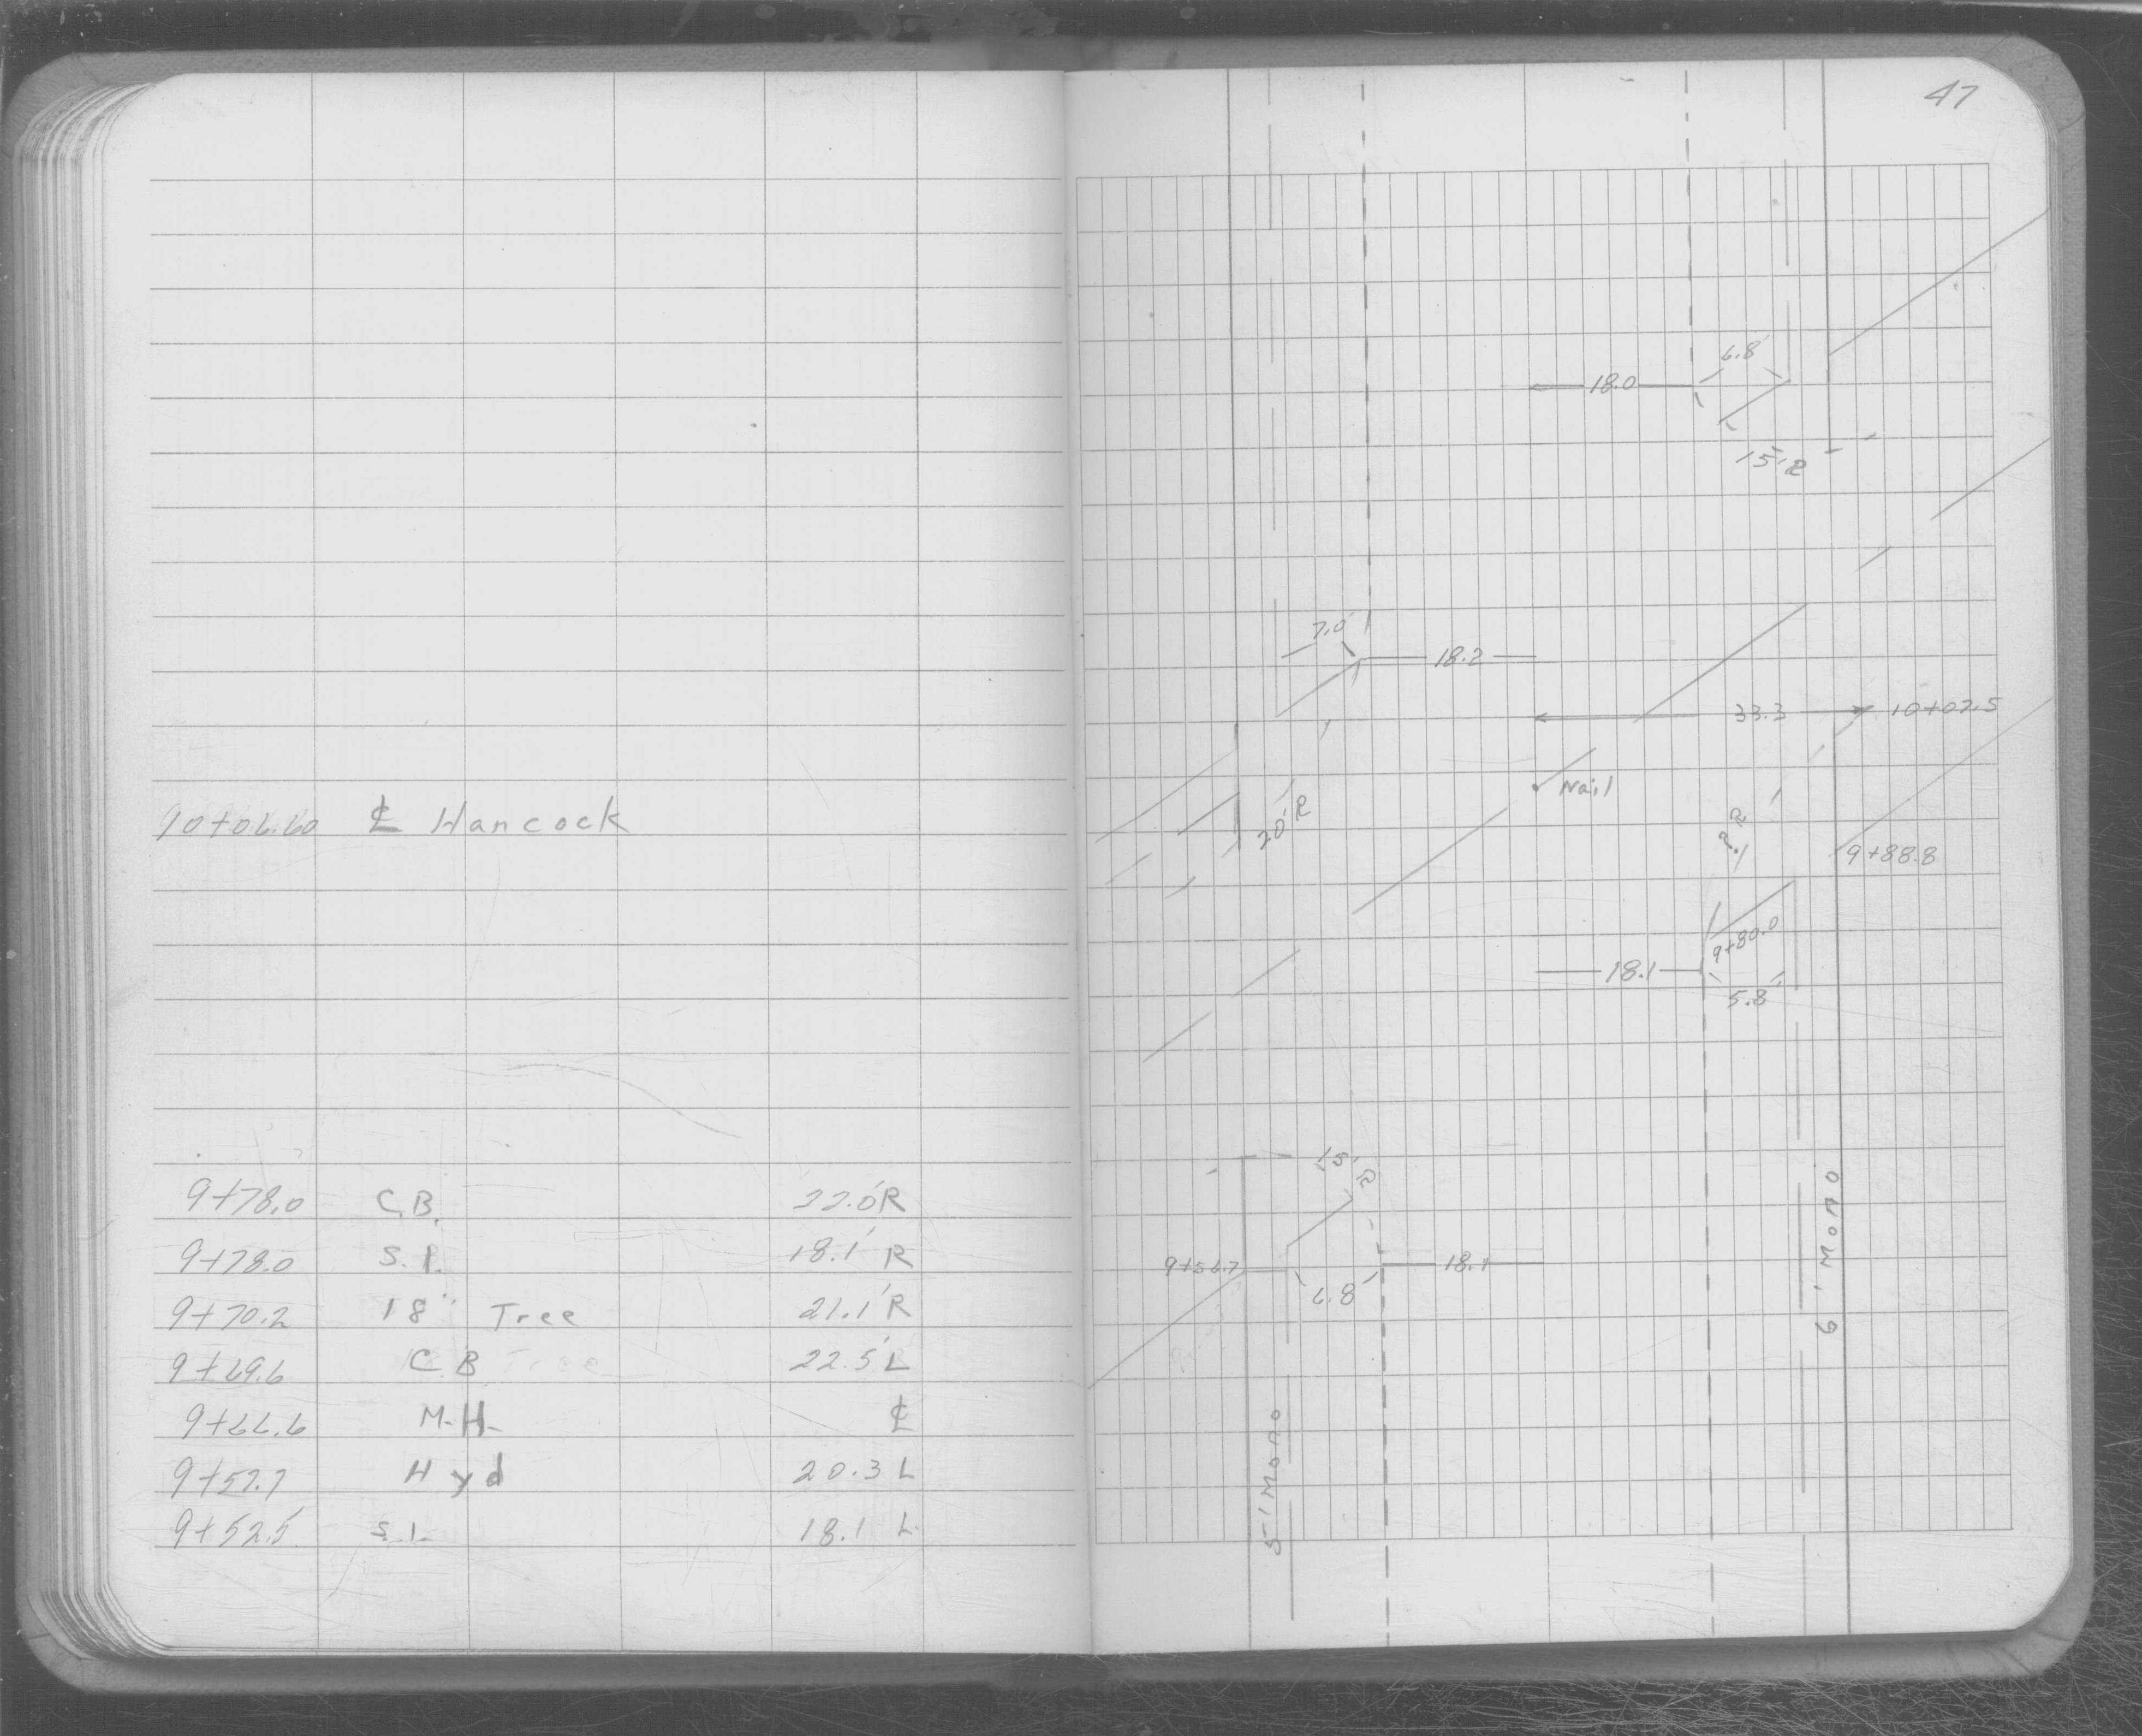 47
10+06.60 ℄ Hancock
9+78.0 C.B. 22.0' R
9+78.0 S.I. 18.1' R
9+70.2 18" Tree 21.1' R
9+69.6 C B 22.5' L
9+66.6 M.H. ℄
9+57.7 Hyd 20.3 L
9+52.5 S.I. 18.1 L
6.8'
18.0
15'R
7.0'
18.2
33.3 10+02.5
Nail
20'R
9+88.8
9+80.0
18.1
5.8'
15' R
9+56.7
18.1
6.8'
6' Mono
5' Mono